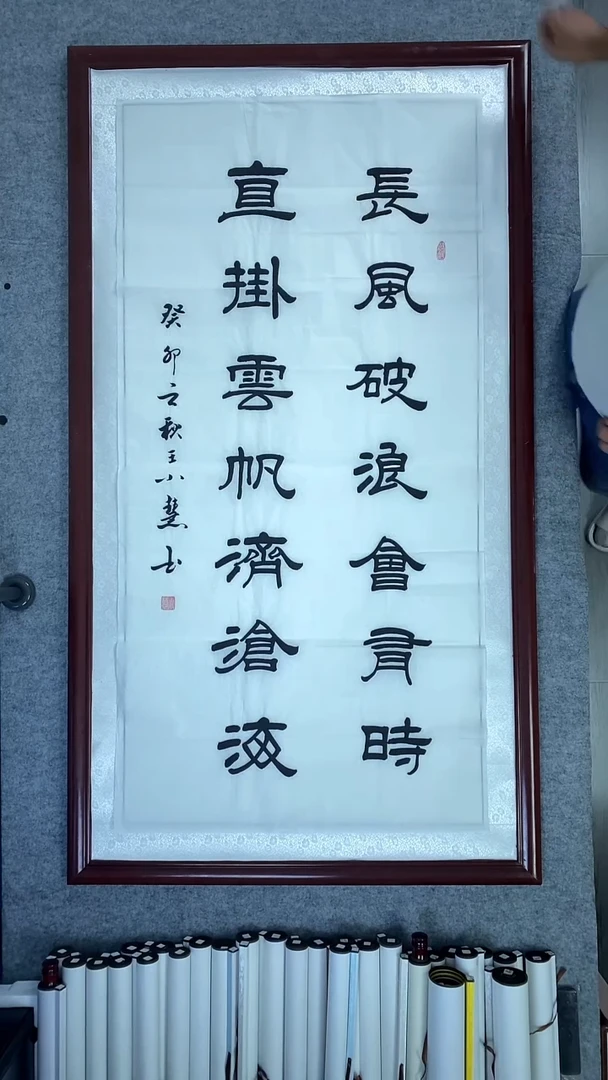 長風破浪會有時
直掛雲帆濟滄海
癸卯之秋王小慧书